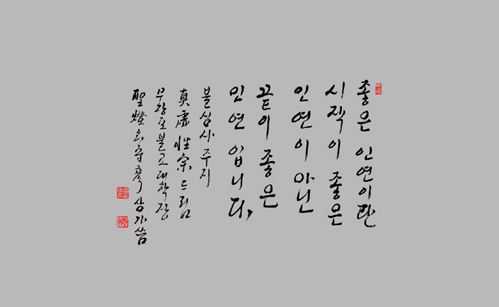 좋은 인연이란
시작이 좋은
인연이 아닌
끝이 좋은
인연 입니다,
불심사 주지
真虛性宗 드림
불교대학장
聖燈 삼가 씀